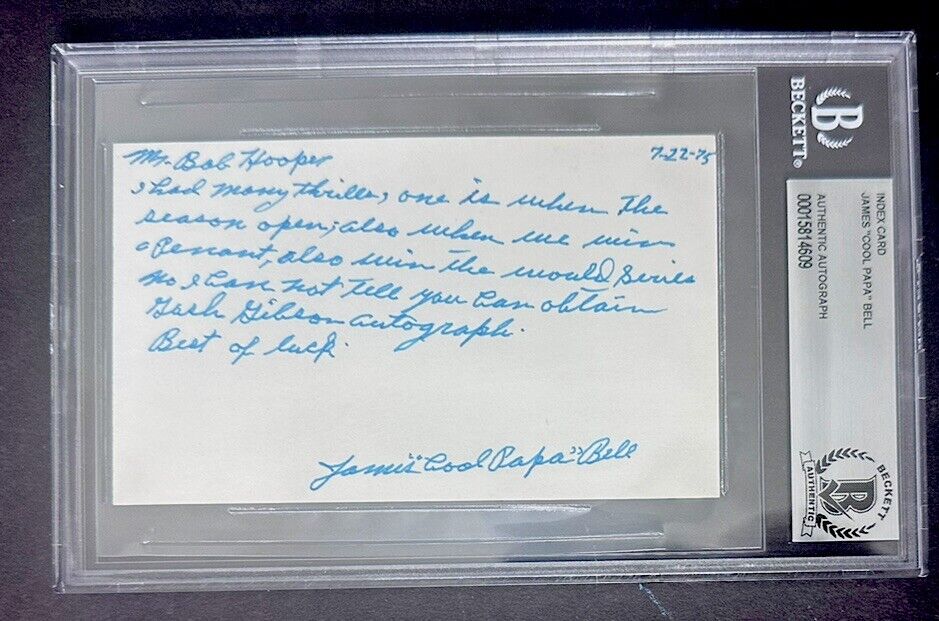 Mr. Bob Hooper
7-22-75
I had many thrills, one is when The
season open; also when we win
a Pennant, also win the would Series
No I can not Tell you can obtain
Gosh Gibson autograph.
Best of luck.
James "Cool Papa" Bell
BECKETT®
INDEX CARD
JAMES "COOL PAPA" BELL
AUTHENTIC AUTOGRAPH
00015814609
BECKETT
AUTHENTIC